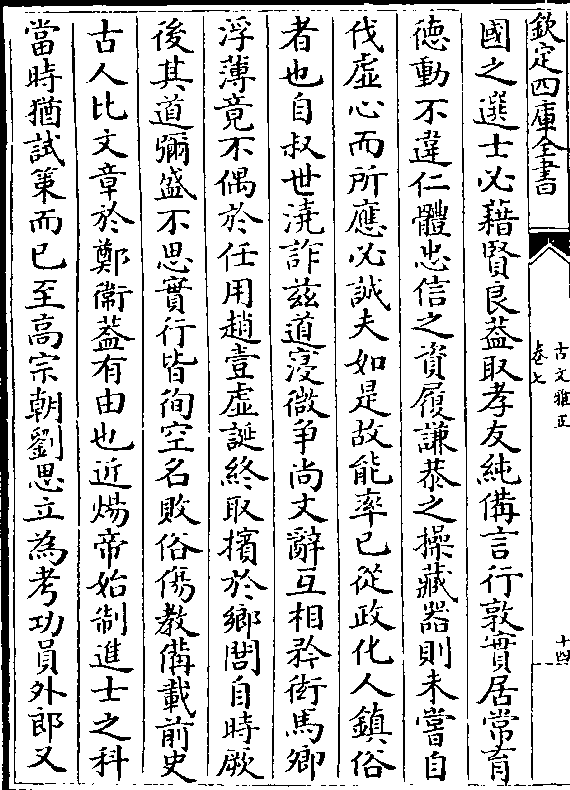 欽定四庫全書
古文雅正
卷七
十四
國之選士必藉賢良葢取孝友純備言行敦實居常育
徳動不違仁體忠信之資履謙恭之操藏器則未嘗自
伐虚心而所應必誠夫如是故能率已從政化人鎮俗
者也自叔世澆詐兹道寖微争尚文辭互相矜衒馬卿
浮薄竟不偶於任用趙壹虚誕終取擯於鄉閭自時厥
後其道彌盛不思實行皆徇空名敗俗傷教備載前史
古人比文章於鄭衞葢有由也近煬帝始制進士之科
當時猶試策而已至髙宗朝劉思立為考功員外郎又